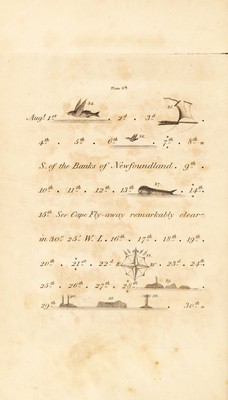 Plate 6th
Augt. 1st . 2d . 3d .
4th . 5th . 6th . 7th . 8th =
S. of the Banks of Newfoundland . 9th .
10th . 11th . 12th . 13th . 14th .
15th See Cape Fly-away remarkably clear
in 30° 25' W. L . 16th . 17th . 18th . 19th .
20th . 21st . 22d E W . 23d . 24th .
25th . 26th . 27th . 28th
29th . 30th =